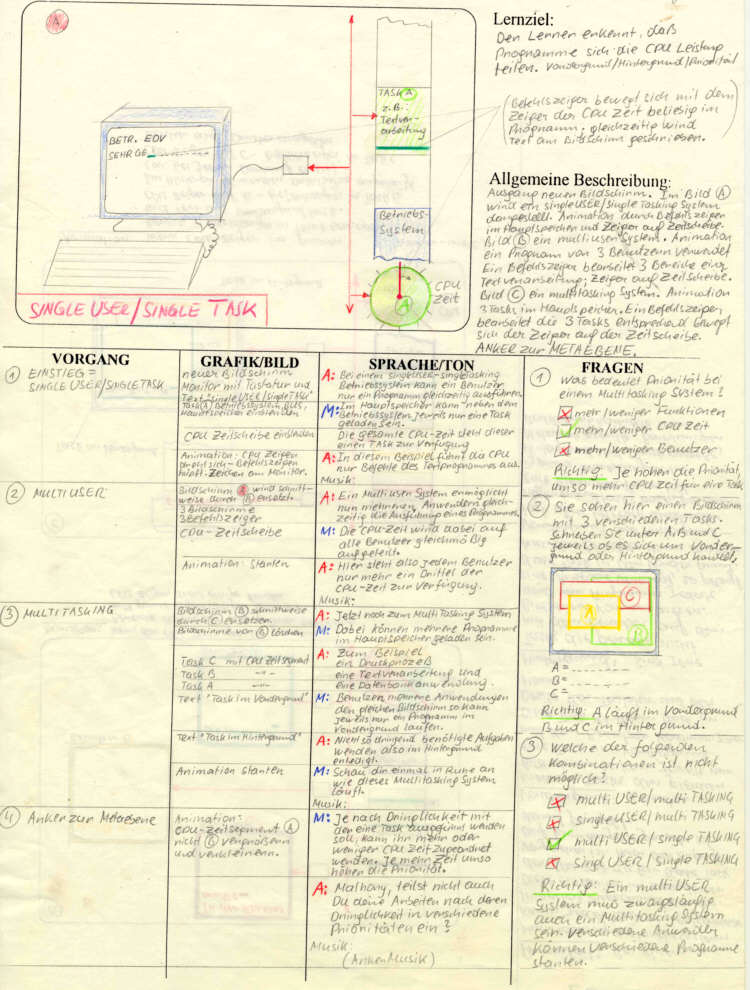 A
BETR. EDV
SEHR GE
TASK A
z.B.
Textver-
arbeitung
Betriebs-
System
CPU
Zeit
A
SINGLE USER/SINGLE TASK
Lernziel:
Der Lerner erkennt, daß
Programme sich die CPU Leistung
teilen. Vordergrund/Hintergrund/Priorität
(Befehlszeiger bewegt sich mit dem
Zeiger der CPU Zeit beliebig im
Programm, gleichzeitig wird
Text am Bildschirm geschrieben.)
Allgemeine Beschreibung:
Ausgang neuer Bildschirm. Im Bild A
wird ein singleUSER/single Tasking System
dargestellt. Animation durch Befehlszeiger
im Hauptspeicher und Zeiger auf Zeitscheibe.
Bild B ein multiuser System. Animation
ein Program von 3 Benutzern verwendet
Ein Befehlszeiger bearbeitet 3 Bereiche einer
Textverarbeitung; Zeiger auf Zeitscheibe.
Bild C ein multitasking System. Animation
3 Tasks im Hauptspeicher. Ein Befehlszeiger
bearbeitet die 3 Tasks entsprechend bewegt
sich der Zeiger auf der Zeitscheibe.
ANKER zur METAEBENE.
VORGANG
1 EINSTIEG =
SINGLE USER/SINGLE TASK
2 MULTIUSER
3 MULTITASKING
4 Anker zur Metaebene
GRAFIK/BILD
neuer Bildschirm
Monitor mit Tastatur und
Text "Single USER/SINGLE TASK"
Task(A) Betriebssystem, BUS,
Hauptspeicher einblenden
CPU Zeitscheibe einblenden
Animation: CPU Zeiger
Befehlszeiger
Zeichen am Monitor.
Bildschirm A wird schritt-
weise durch B ersetzt.
3 Bildschirme
3 Befehlszeiger
CPU-Zeitscheibe
Animation: Starten
Bildschirm B schrittweise
durch C ersetzen.
Bildschirme vor C löschen
Task C mit CPU Zeitsegment
Task B -"-
Task A -"-
Text "Task im Vordergrund"
Text "Task im Hintergrund"
Animation starten
Animation:
CPU-Zeitsegment A
vergrößern
und verkleinern.
SPRACHE/TON
A: Bei einem singleUSER-singletasking
Betriebssystem kann ein Benutzer
nur ein Programm gleichzeitig ausführen.
M: Im Hauptspeicher kann neben dem
Betriebssystem jeweils nur eine Task
geladen sein.
Die gesamte CPU-Zeit steht dieser
einen TASK zur Verfügung
A: In diesem Beispiel führt die CPU
nur Befehle des Textprogramms aus.
Musik:
A: Ein Multiuser System ermöglicht
nun mehreren Anwendern gleich-
zeitig die Ausführung eines Programmes.
M: Die CPU-Zeit wird dabei auf
alle Benutzer gleichmäßig
aufgeteilt.
A: Hier steht also jedem Benutzer
nur mehr ein Drittel der
CPU-Zeit zur Verfügung.
Musik:
A: Jetzt noch zum Multi Tasking System
M: Dabei können mehrere Programme
im Hauptspeicher geladen sein.
A: Zum Beispiel
ein Druckprozeß
eine Textverarbeitung und
eine Datenbankanwendung.
M: Benutzen mehrere Anwendungen
den gleichen Bildschirm so kann
jeweils nur ein Programm im
Vordergrund laufen.
A: Nicht so dringend benötigte Aufgaben
werden also im Hintergrund
erledigt.
M: Schau dir einmal in Ruhe an
wie dieses Multitasking System
läuft.
Musik:
M: Je nach Dringlichkeit mit
der eine Task ausgeführt werden
soll, kann ihr mehr oder
weniger CPU Zeit zugeordnet
werden. Je mehr Zeit umso
höher die Priorität.
A: teilst nicht auch
Du deine Arbeiten nach deren
Dringlichkeit in verschiedene
Prioritäten ein?
Musik:
(AnkerMusik)
FRAGEN
1 Was bedeutet Priorität bei
einem Multitasking System?
mehr/weniger Funktionen
mehr/weniger CPU Zeit
mehr/weniger Benutzer
Richtig: Je höher die Priorität,
umso mehr CPU Zeit für eine Task
2 Sie sehen hier einen Bildschirm
mit 3 verschiedenen Tasks.
Schreiben Sie unter A, B und C
jeweils ob es sich um Vorder-
grund oder Hintergrund handelt.
C
A
B
A =
B =
C =
Richtig: A läuft im Vordergrund
B und C im Hintergrund.
3 Welche der folgenden
Kombinationen ist nicht
möglich?
multi USER/multi TASKING
single USER/multi TASKING
multi USER/single TASKING
singl USER/single TASKING
Richtig: Ein multi USER
System muß zwangsläufig
auch ein Multitasking System
sein. Verschiedene Anwender
können verschiedene Programme
starten.